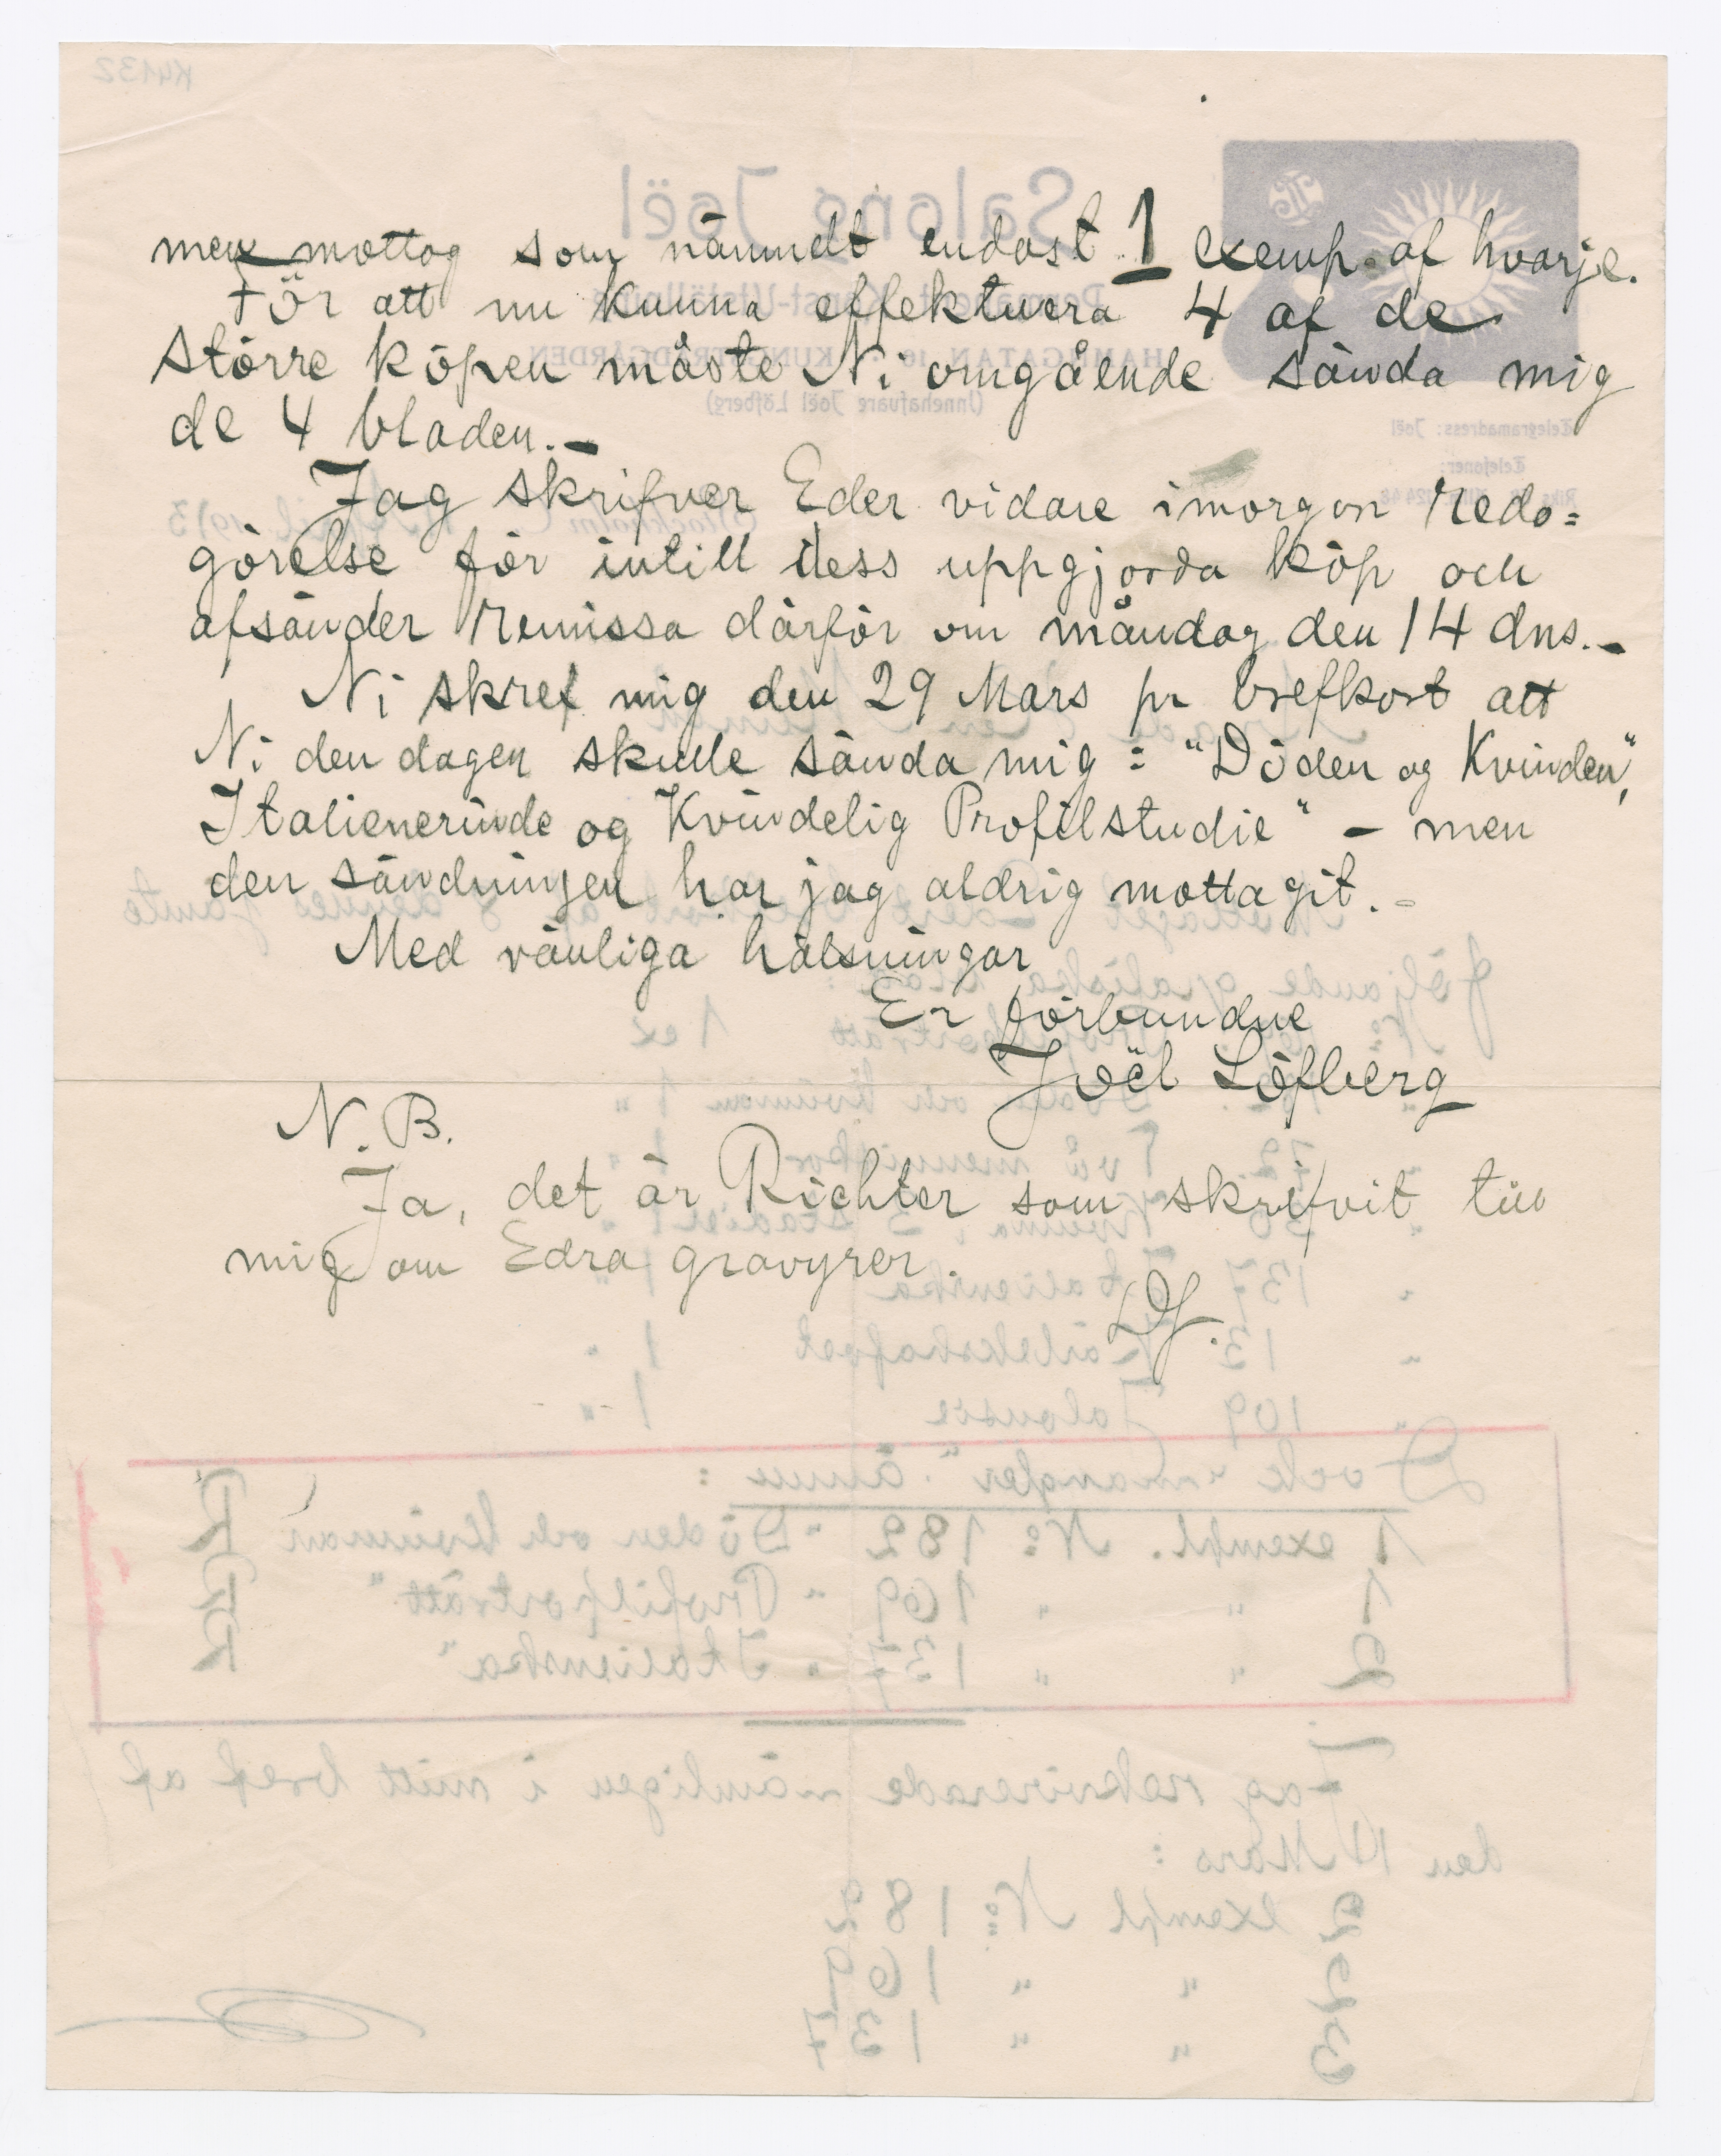 men mottog som nämndt endast 1 exemp. af hvarje.
För att nu kunna effektuera 4 af de
större köpen måste Ni omgående sända mig
de 4 bladen. –
Jag skrifver Eder vidare imorgon redo=
görelse för intill dess uppgjorda köp och
afsänder remissa därför om måndag den 14 dns. –
Ni skref mig den 29 Mars pr brefkort att
Ni den dagen skulle sända mig : "Döden og Kvinden",
Italienerinde og Kvindelig Profilstudie" – men
den sändningen har jag aldrig mottagit. –
Med vänliga hälsningar
Er förbundne
Joël Löfberg
N. B.
Ja, det är Richter som skrifvit till
mig om Edra gravyrer.